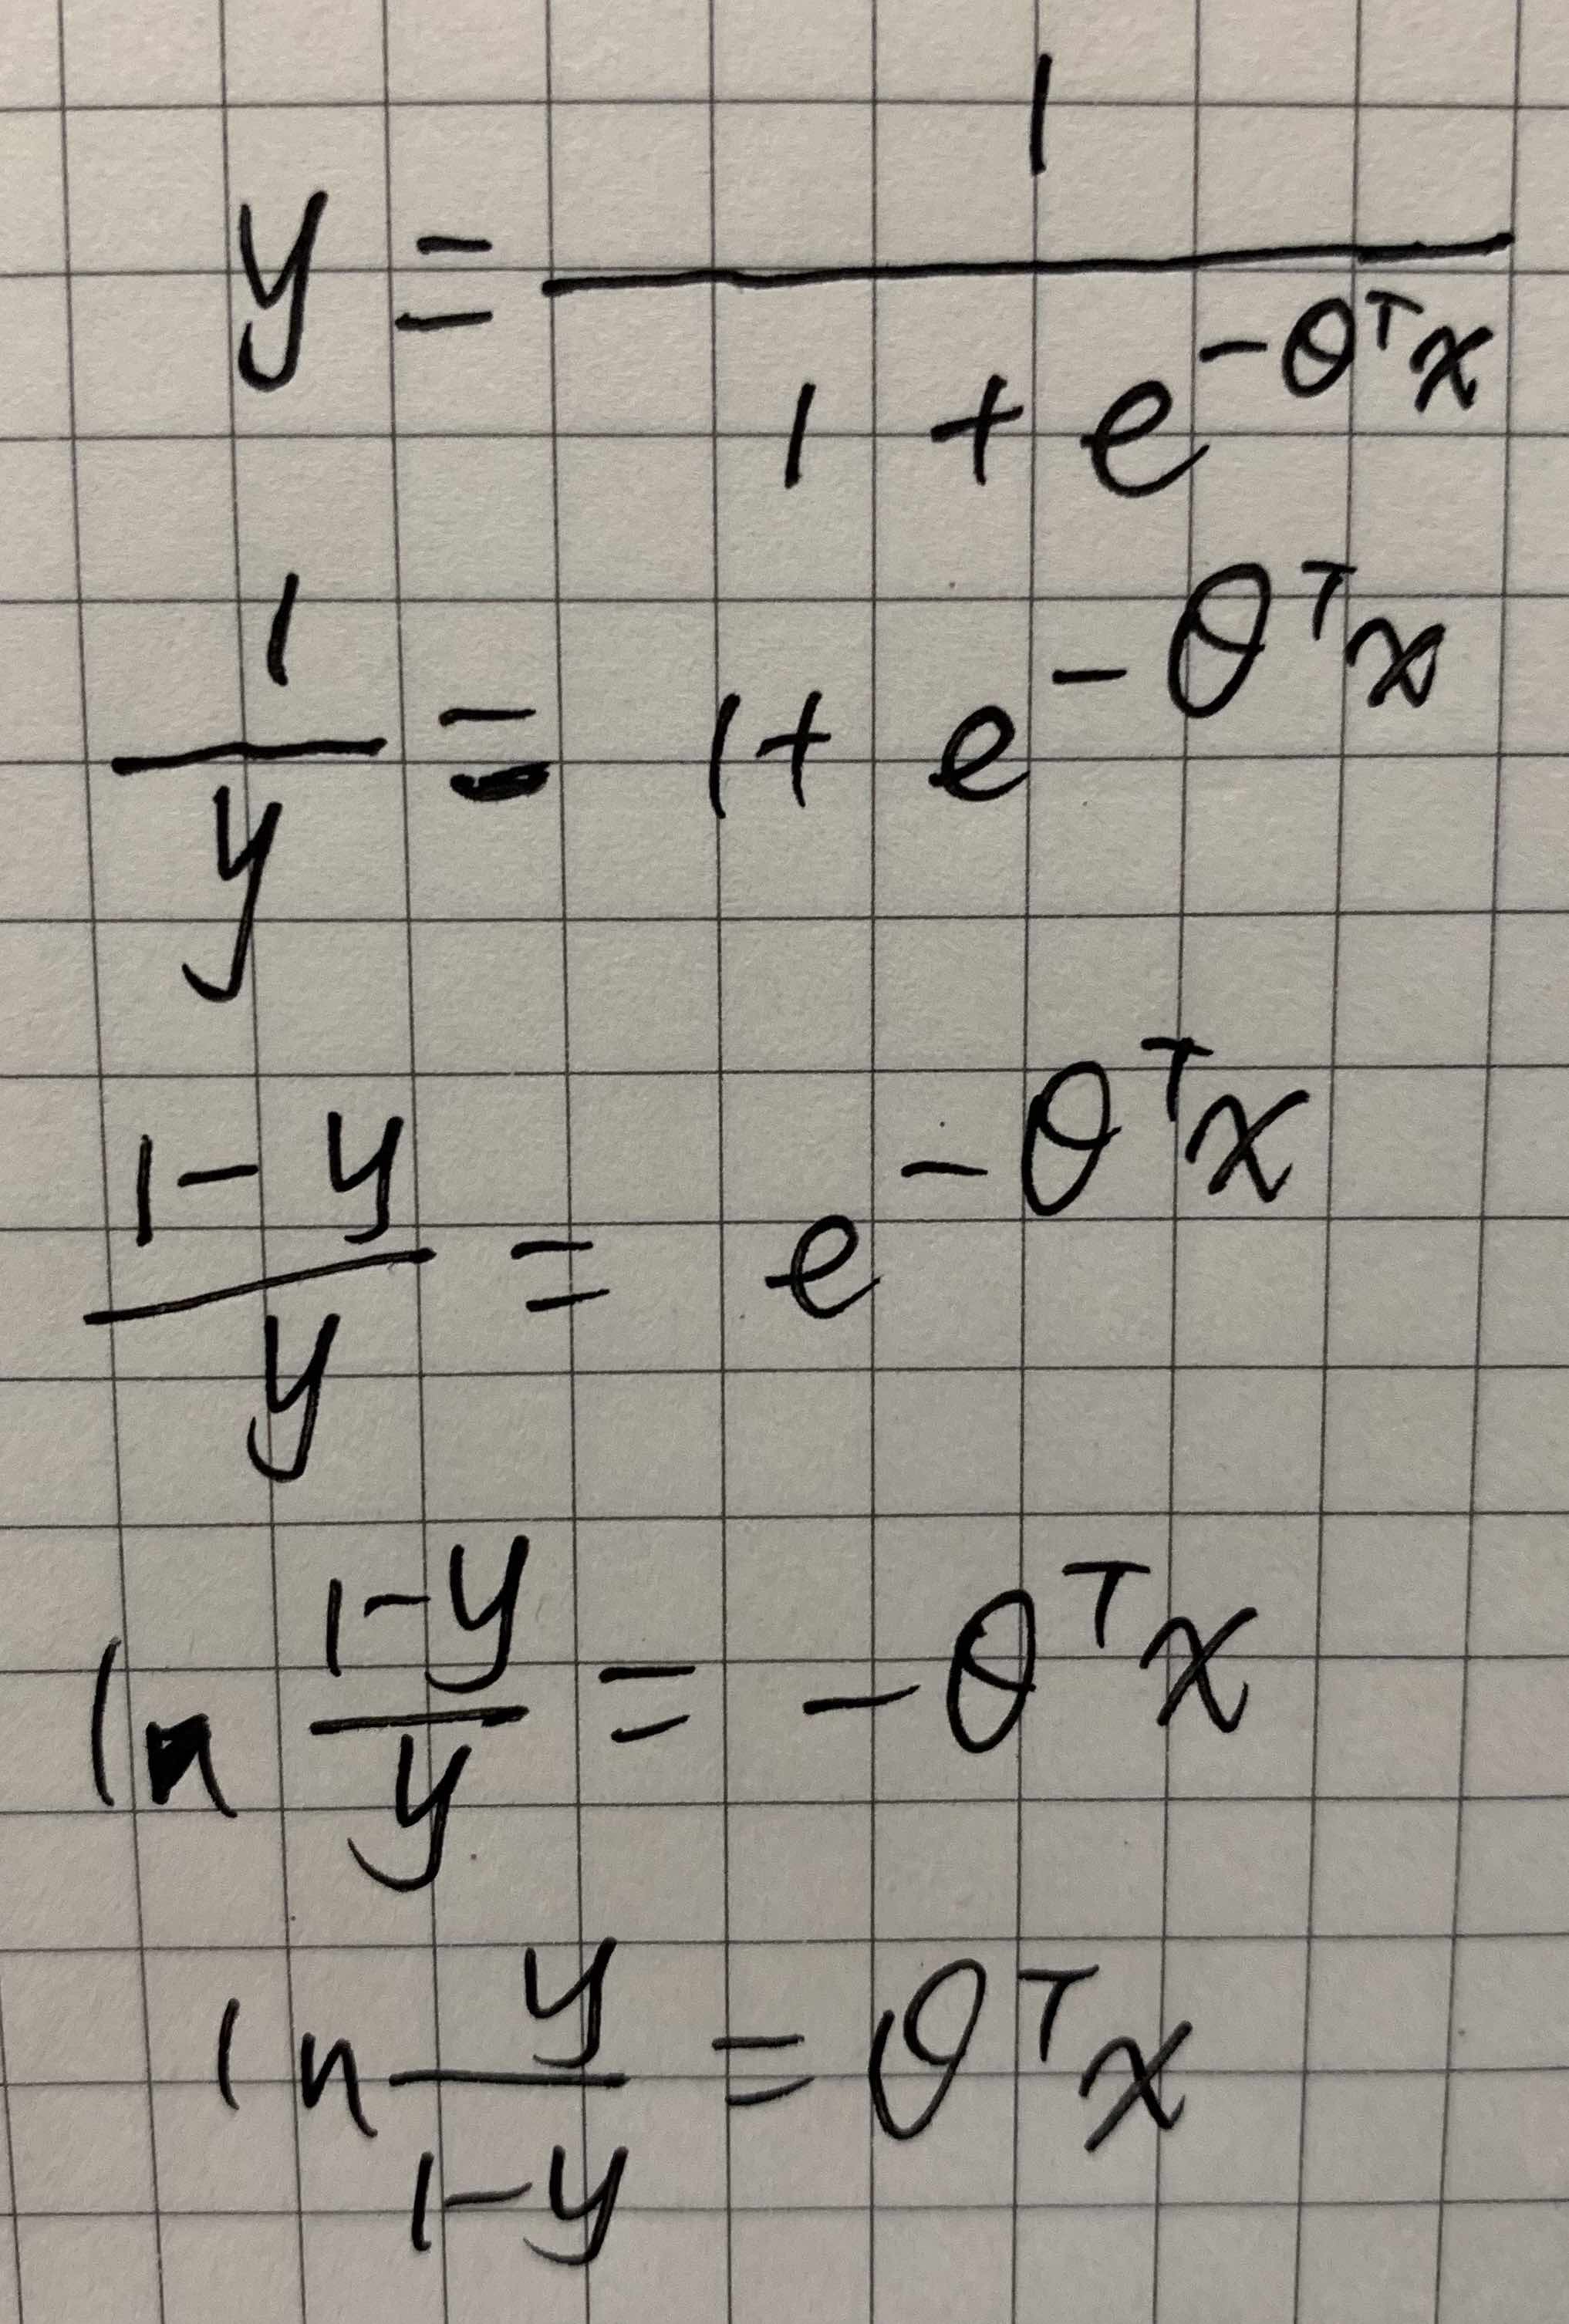 y = 1 / (1 + e^{-θ^T x})
1/y = 1 + e^{-θ^T x}
(1-y)/y = e^{-θ^T x}
ln (1-y)/y = -θ^T x
ln y/(1-y) = θ^T x